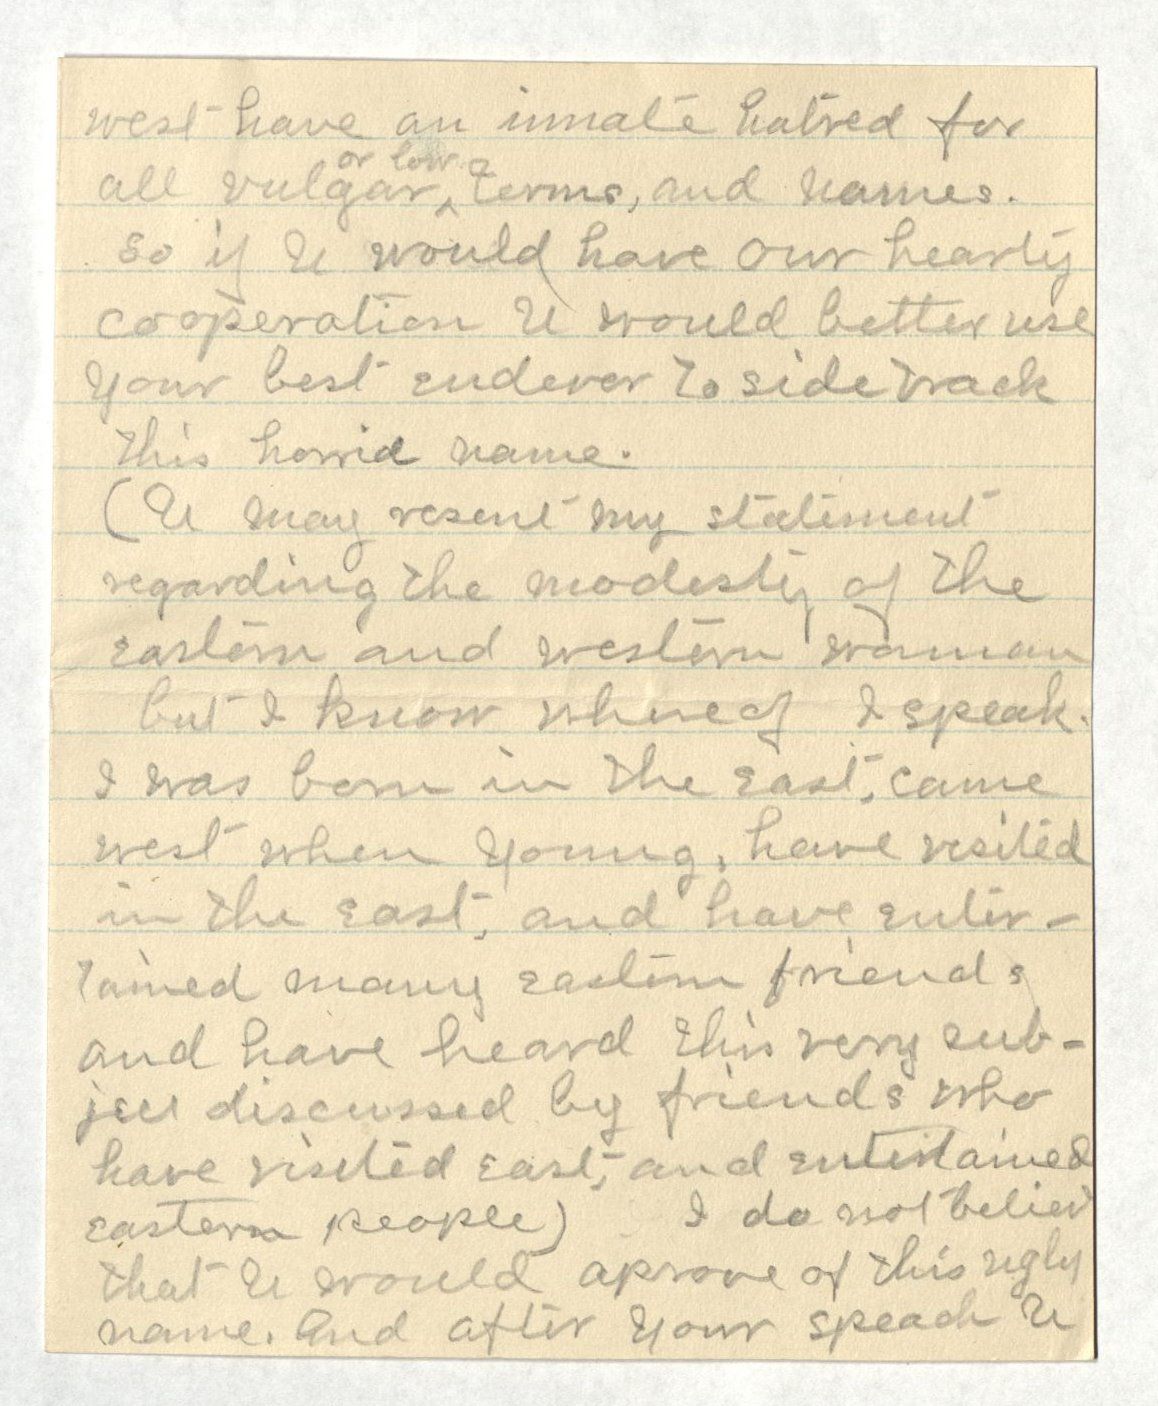 west have an innate hatred for
all vulgar, or low terms, and names.
So if U would have our hearty
cooperation U would better use
your best endevor to side track
this horrid name.
(U may resent my statement
regarding the modesty of the
eastern and western woman
but I know whereof I speak.
I was born in the east, came
west when young, have visited
in the east, and have enter-
tained many eastern friends
and have heard this very sub-
ject discussed by friends who
have visited east, and entertained
eastern people) I do not believ
that U would aprove of this ugly
name. And after your speach U